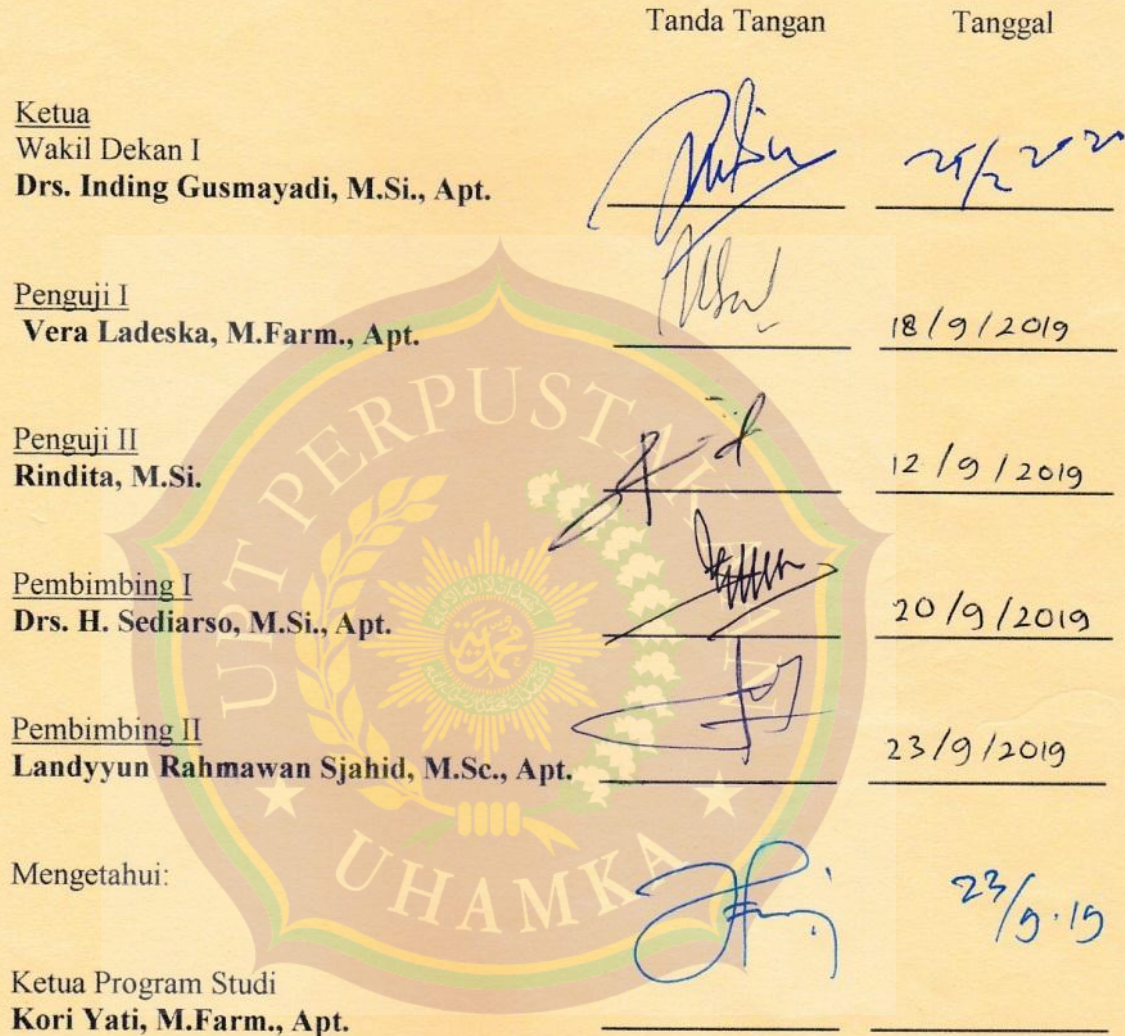 Tanda Tangan Tanggal
Ketua
Wakil Dekan I
Drs. Inding Gusmayadi, M.Si., Apt.
Penguji I
Vera Ladeska, M.Farm., Apt.
18/9/2019
Penguji II
Rindita, M.Si.
12/9/2019
Pembimbing I
Drs. H. Sediarso, M.Si., Apt.
20/9/2019
Pembimbing II
Landyyun Rahmawan Sjahid, M.Sc., Apt.
23/9/2019
Mengetahui:
23/9.19
Ketua Program Studi
Kori Yati, M.Farm., Apt.
UPT PERPUSTAKAAN
UHAMKA